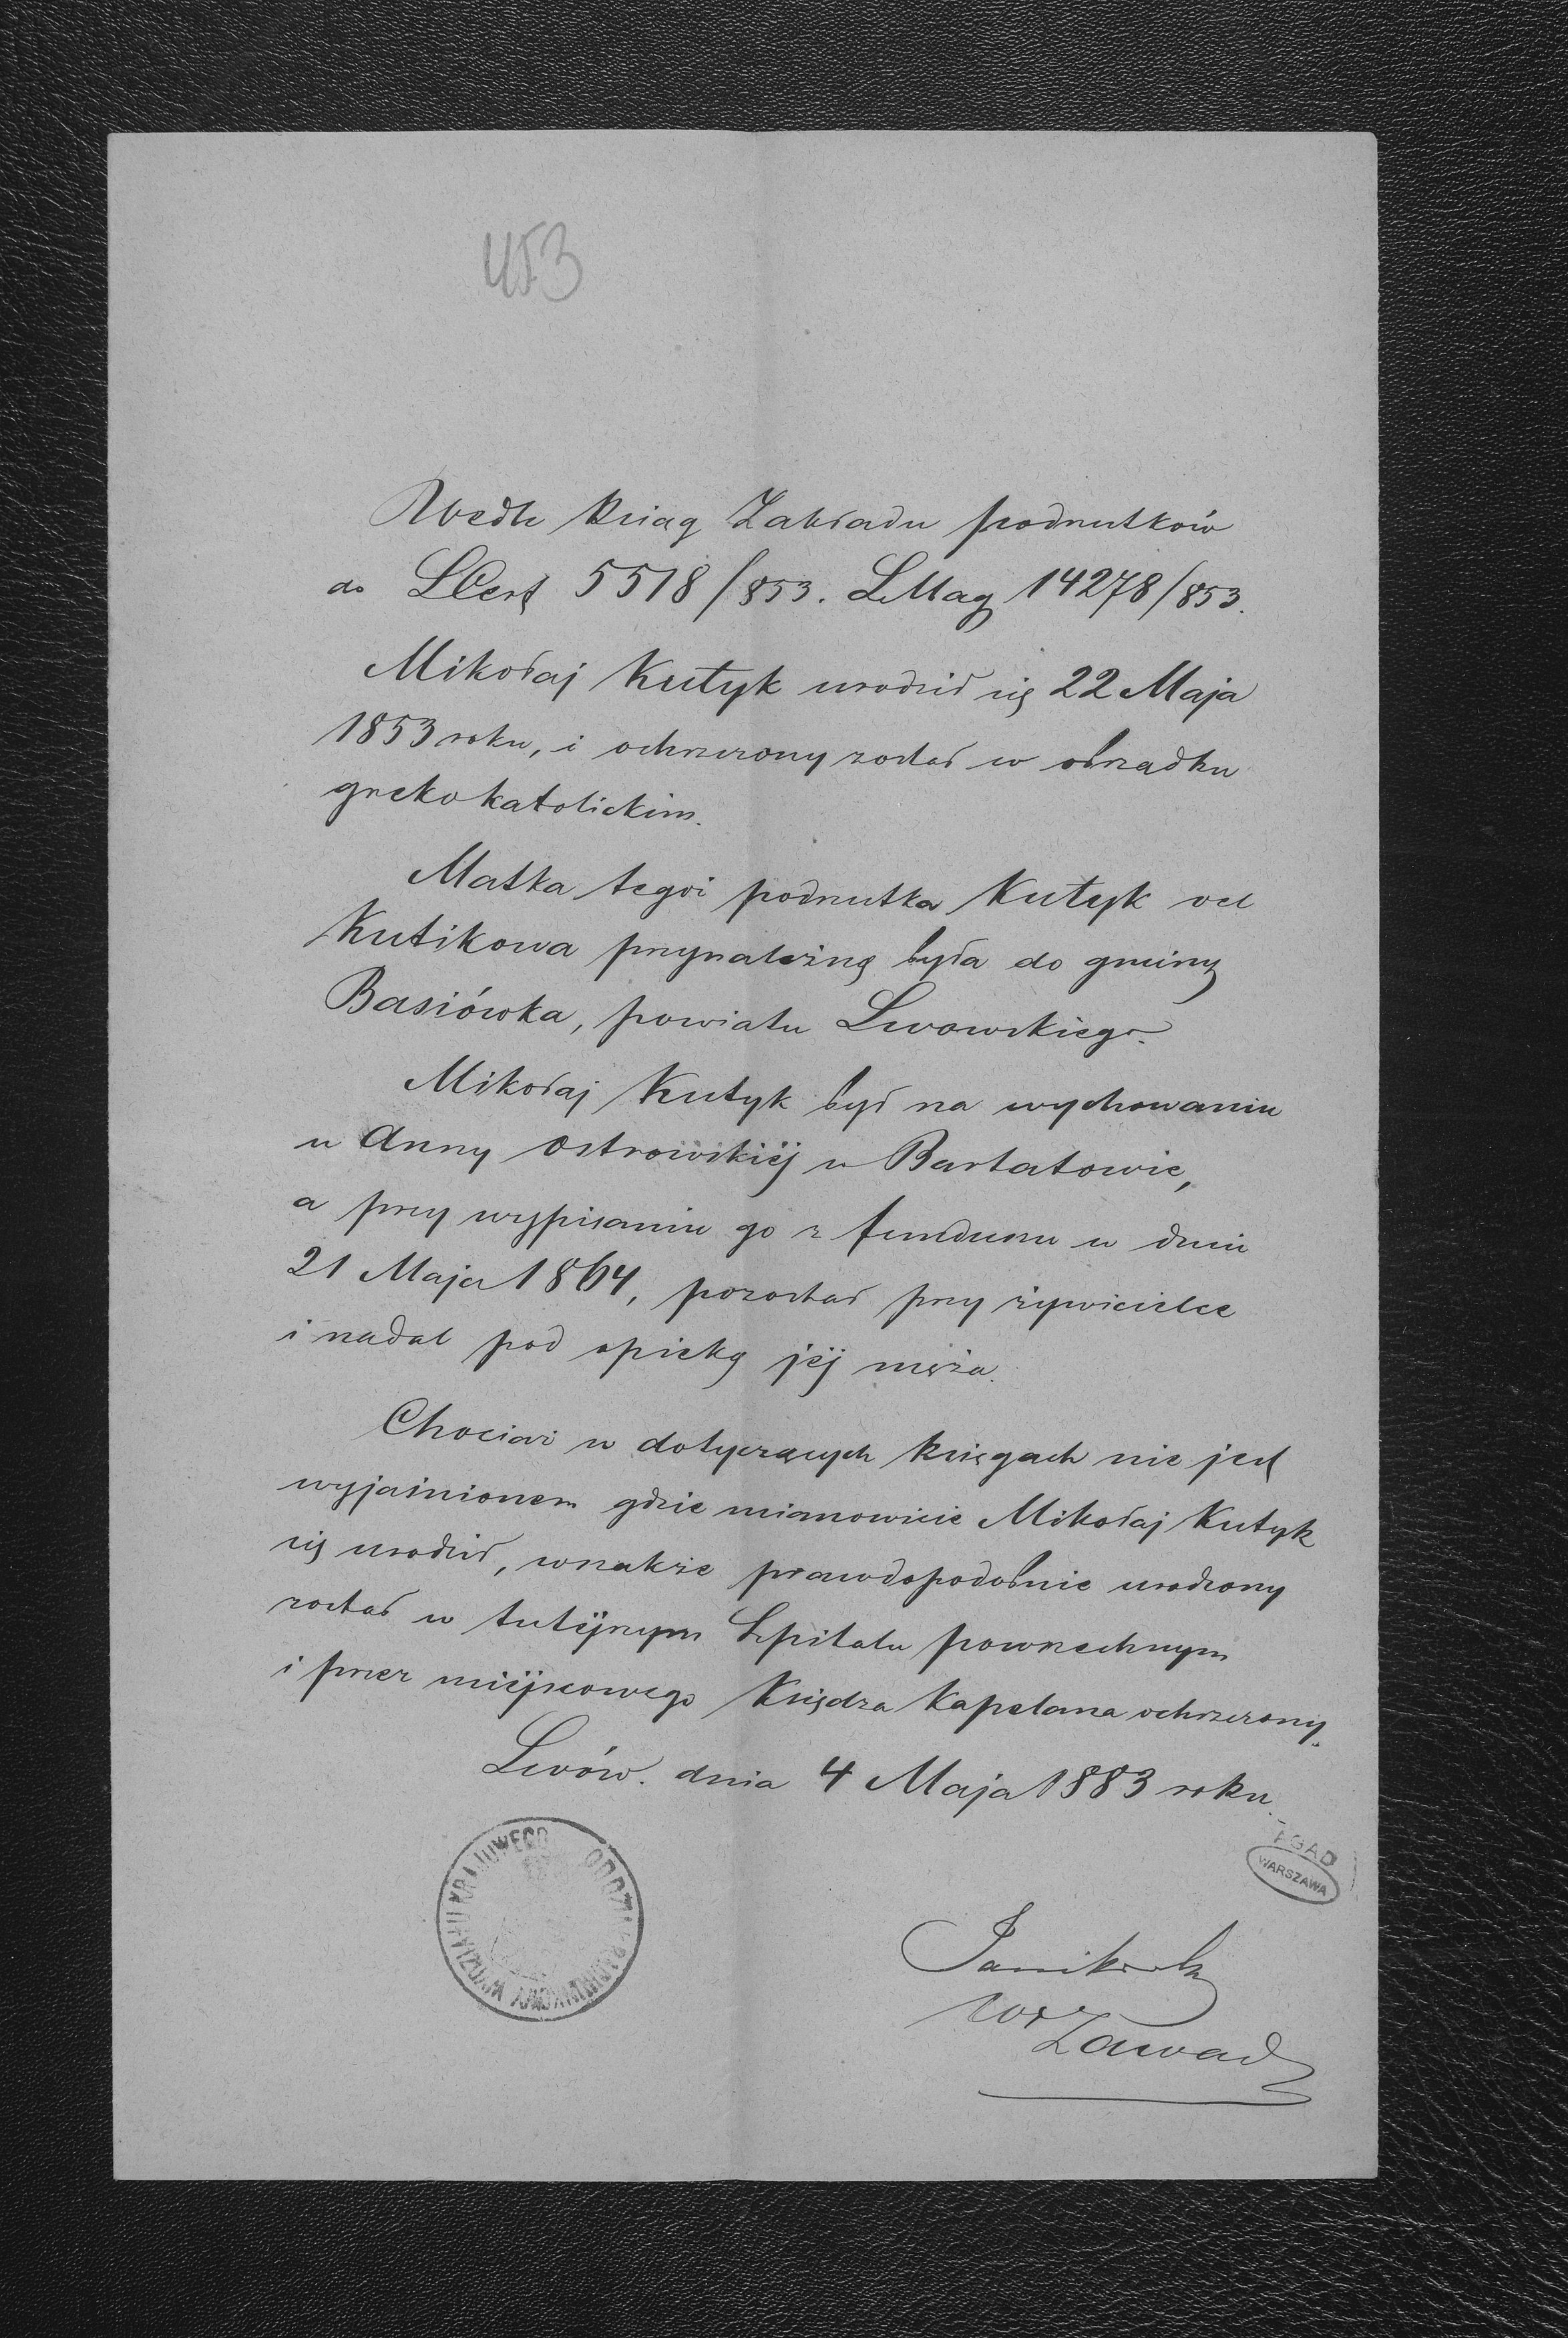 453
Wedle Ksiąg Zakładu podrzutków
do LCert 5518/853. LMag 14278/853.
Mikołaj Kutyk urodził się 22 Maja
1853 roku, i ochrzczony został w obrządku
grekokatolickim.
Matka tegoż podrzutka Kutyk vel
Kutikowa przynależną była do gminy
Basiówka, powiatu Lwowskiego.
Mikołaj Kutyk był na wychowaniu
u Anny Ostrowskiéj w Bartatowie,
a przy wypisaniu go z funduszu w dniu
21 Maja 1864, pozostał przy żywicielce
i nadal pod opieką jéj męża.
Chociaż w dotyczących księgach nie jest
wyjaśnionem gdzie mianowicie Mikołaj Kutyk
się urodził, wszakże prawdopodobnie urodzony
został w tutéjszym Szpitalu powszechnym
i przez miéjscowego Księdza Kapelana ochrzczony.
Lwów. dnia 4 Maja 1883 roku.
WYDZIAŁU KRAJOWEGO
AGAD
WARSZAWA
Zawadz